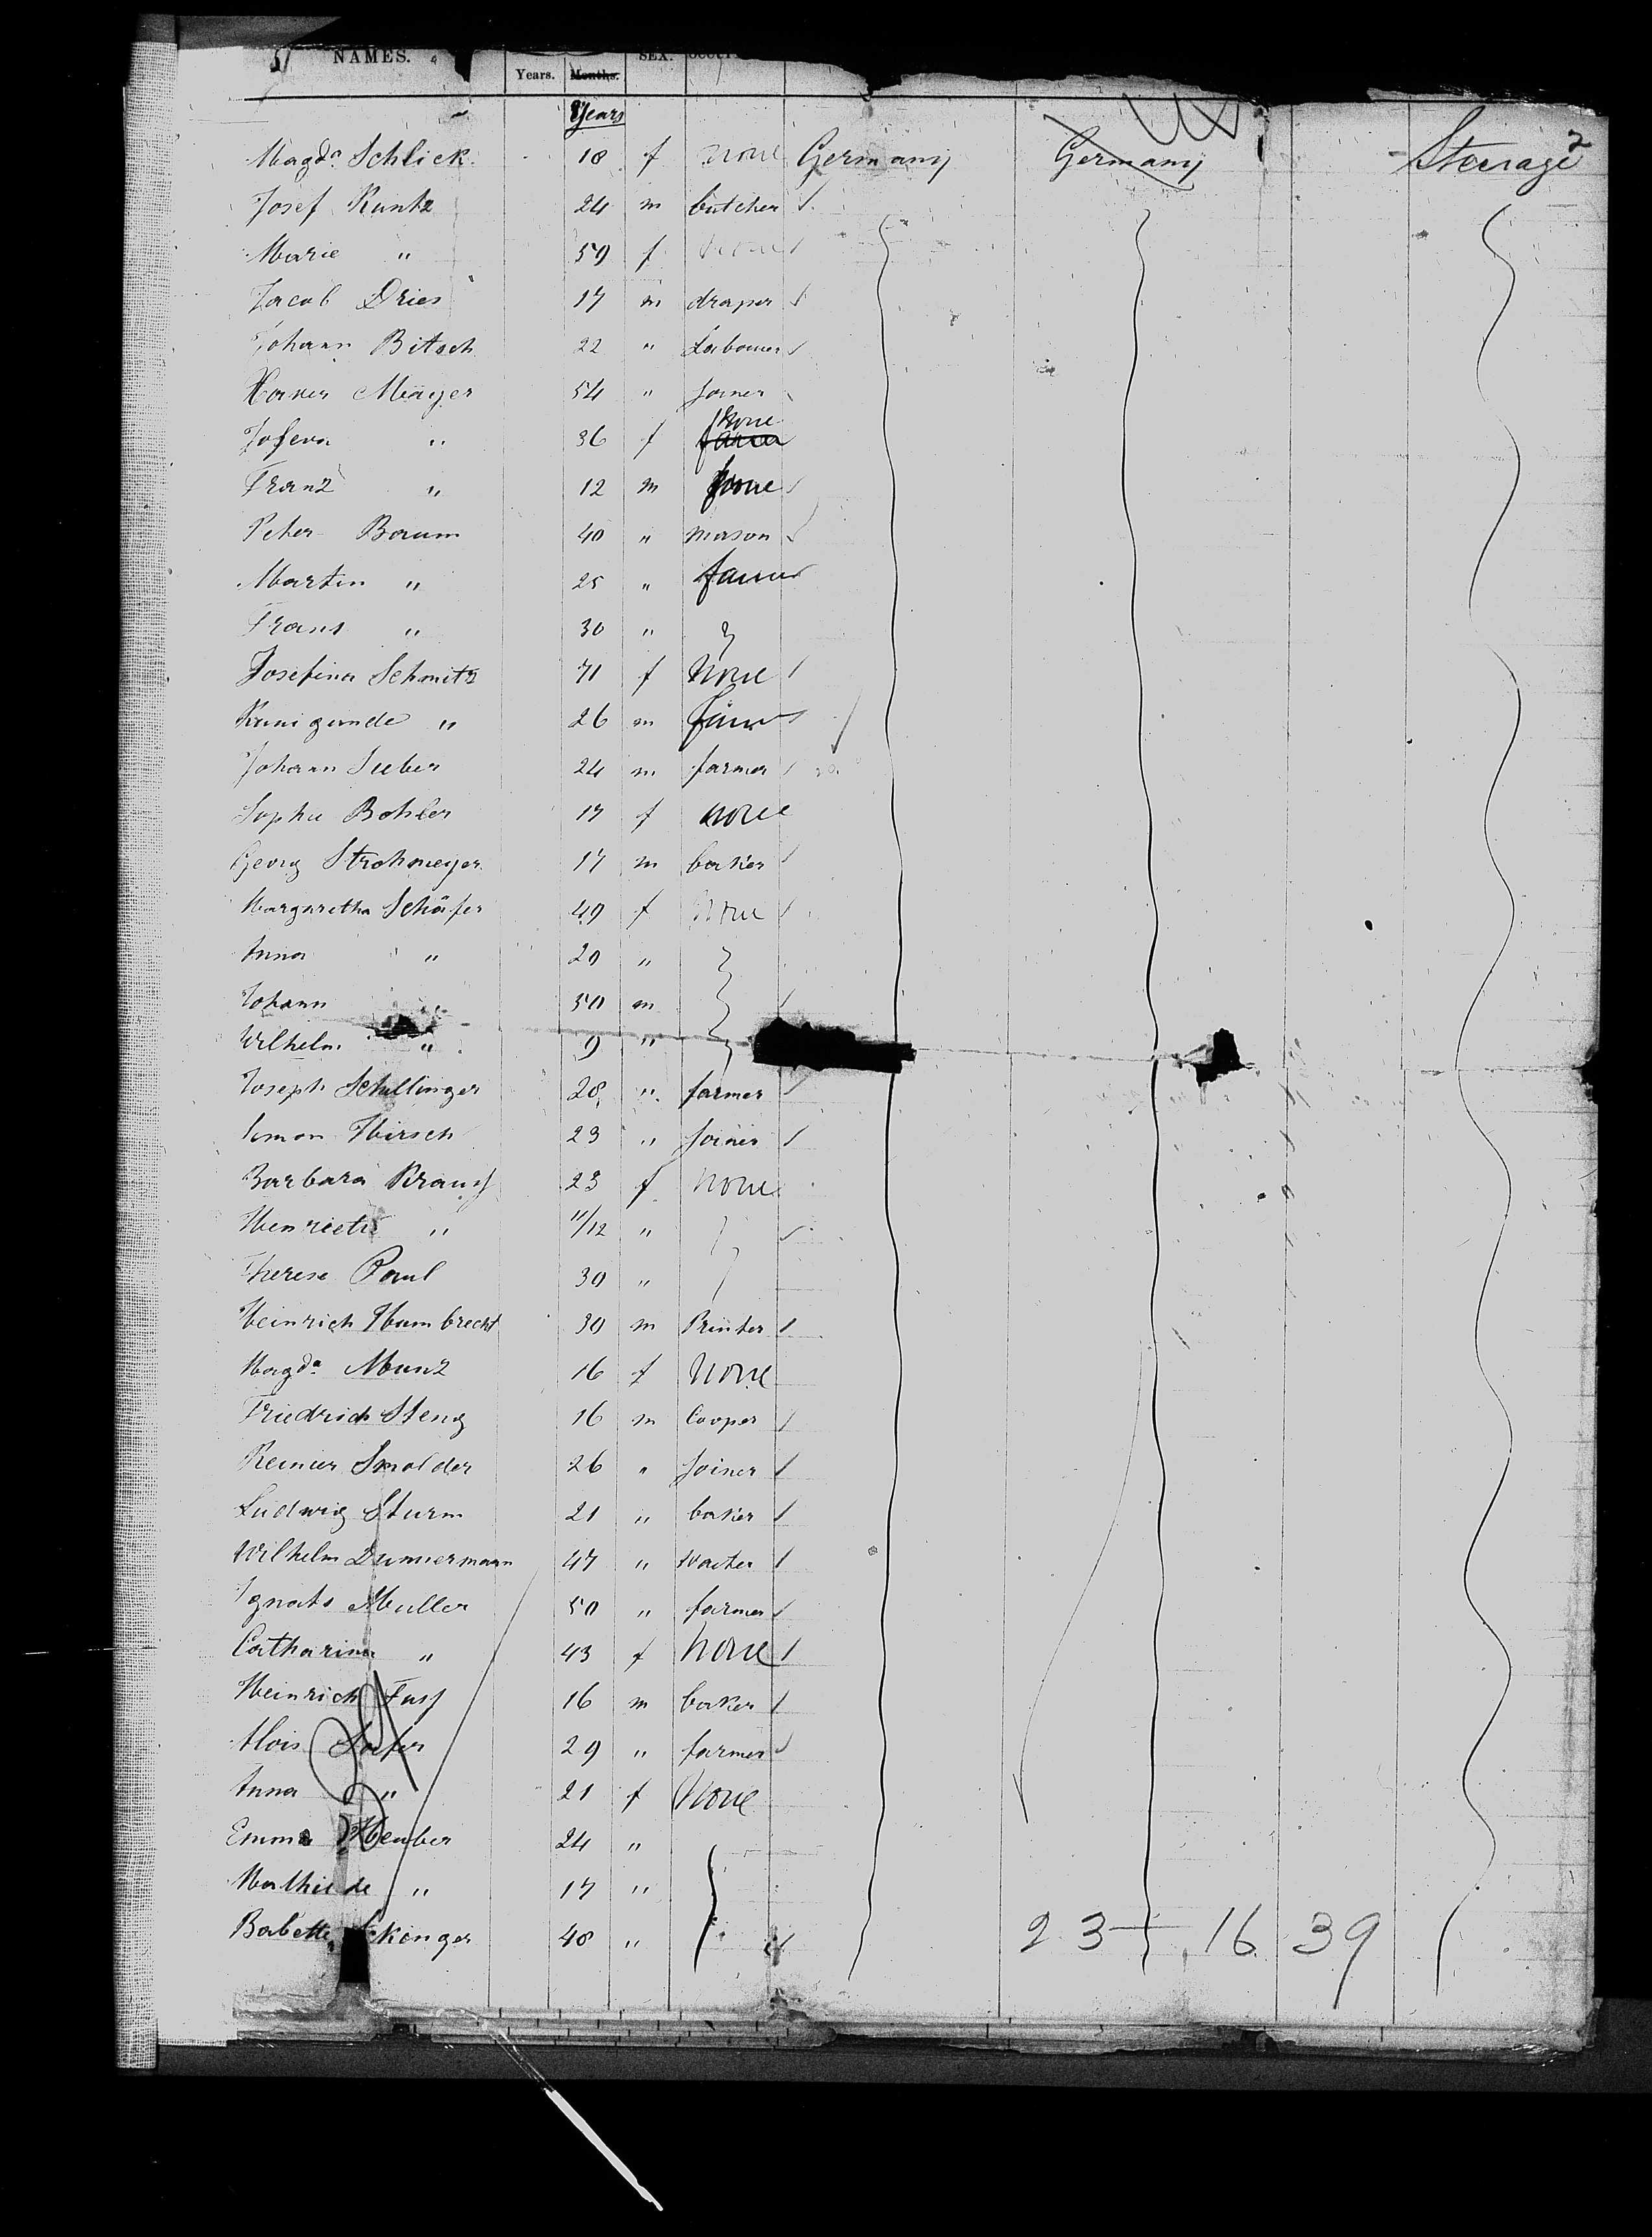 NAMES. Years. Months. SEX.
Years
2
Magda Schlick 18 f none Germany Germany Steerage
Josef Kuntz 24 m butcher
Marie " 59 f none
Jacob Dries 17 m draper
Johann Bitsch 22 " Labourer
Xaver Mayer 54 " joiner
Josefa " 36 f none
Franz " 12 m none
Peter Baum 40 " mason
Martin " 25 " farmer
Frans " 30 "
Josefina Schmitz 71 f None
Kunigunde " 26 m
Johann Sieber 24 m farmer
Sophie Bohler 17 f none
Georg Strohmeyer 17 m baker
Margaretha Schäfer 49 f None
Anna " 20 "
Johann " 50 m
Wilhelm " 9 "
Joseph Schillinger 28 " farmer
Simon Hirsch 23 " joiner
Barbara Krauss 23 f None
Henriette " 11/12 "
Therese Paul 30 "
Heinrich Humbrecht 30 m Printer
Magda Munz 16 f None
Friedrich Steng 16 m Cooper
Reinier Smolder 26 " joiner
Ludwig Sturm 21 " baker
Wilhelm Dunnermann 47 " Waiter
Ignats Muller 50 " farmer
Catharina " 43 f None
Heinrich Fass 16 m baker
Alois 29 " farmer
Anna " 21 f None
Emma Heuber 24 "
Mathilde " 17 "
Babette 48 "
23 16 39